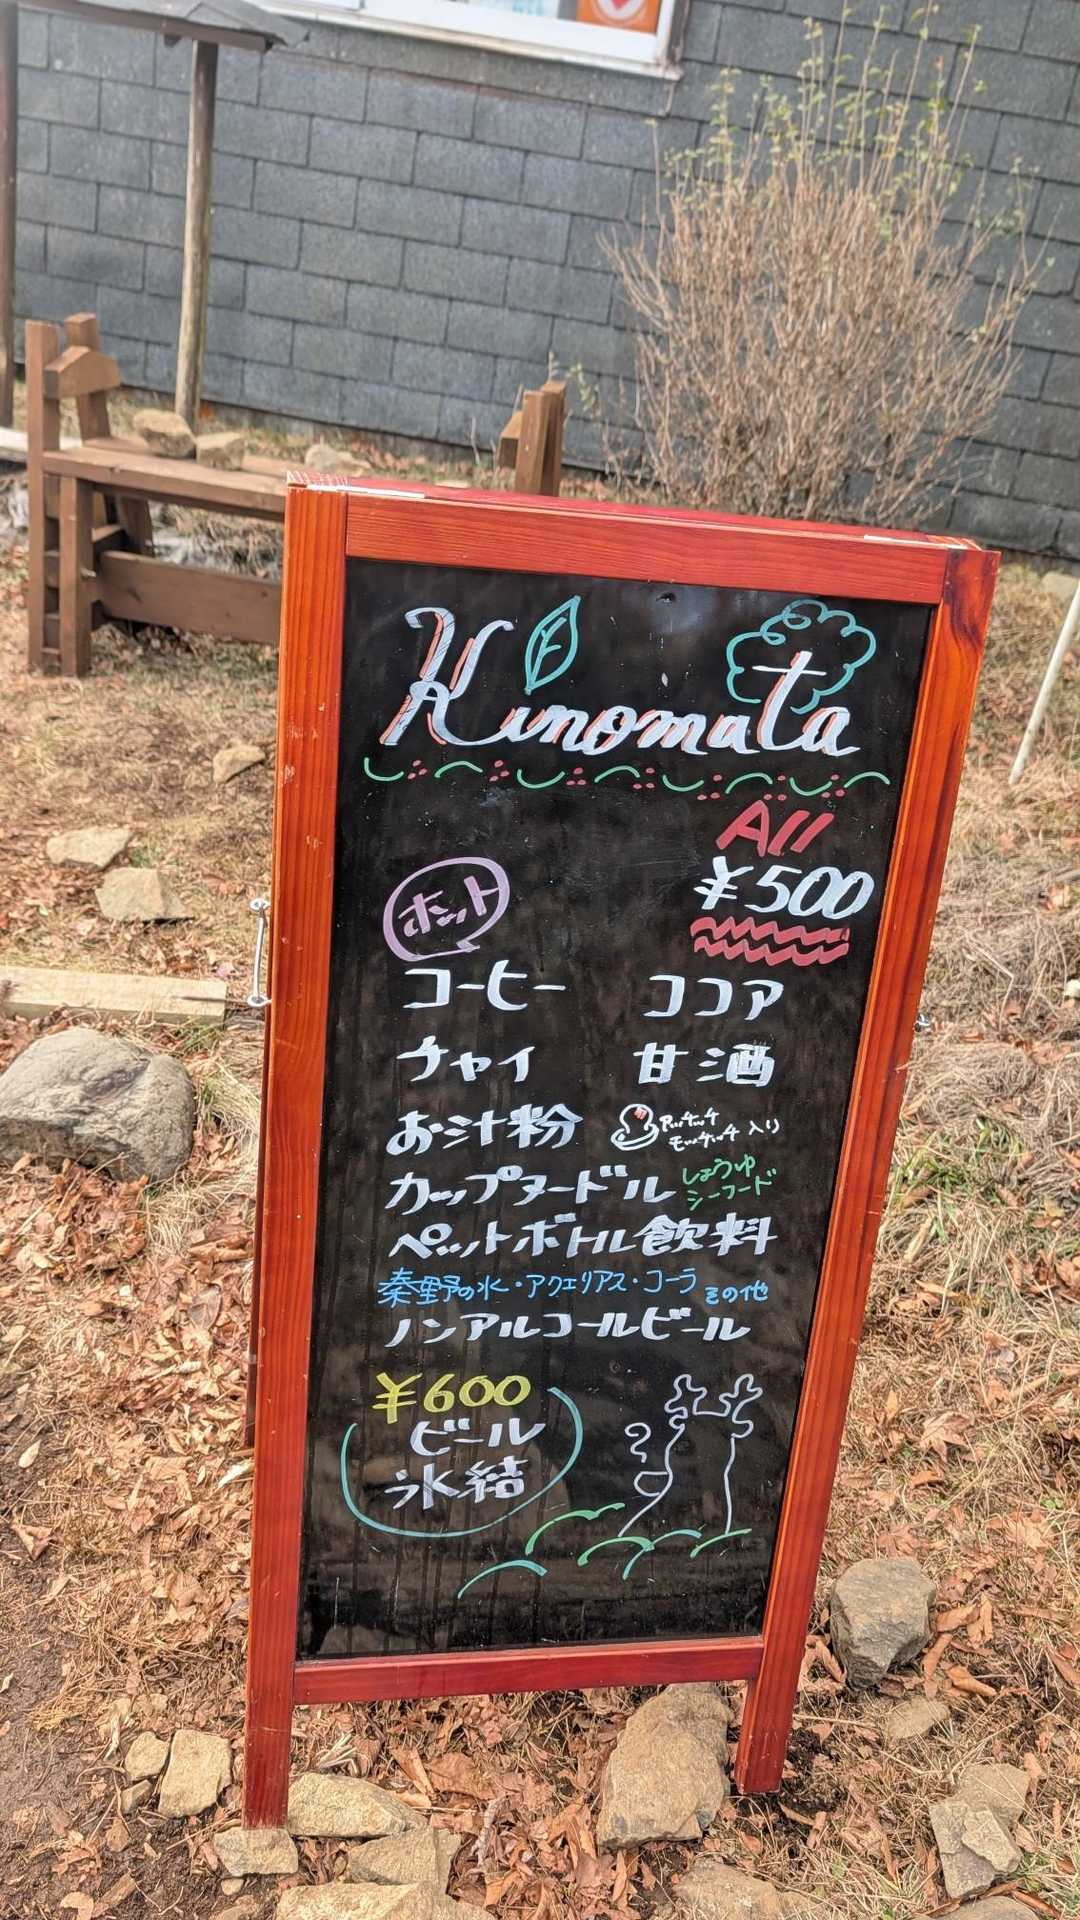 Kinomata
All
¥500
ホット
コーヒー ココア
チャイ 甘酒
お汁粉 アッチッチ
モッチッチ 入り
カップヌードル しょうゆ
シーフード
ペットボトル飲料
秦野の水・アクエリアス・コーラ その他
ノンアルコールビール
¥600
ビール
氷結